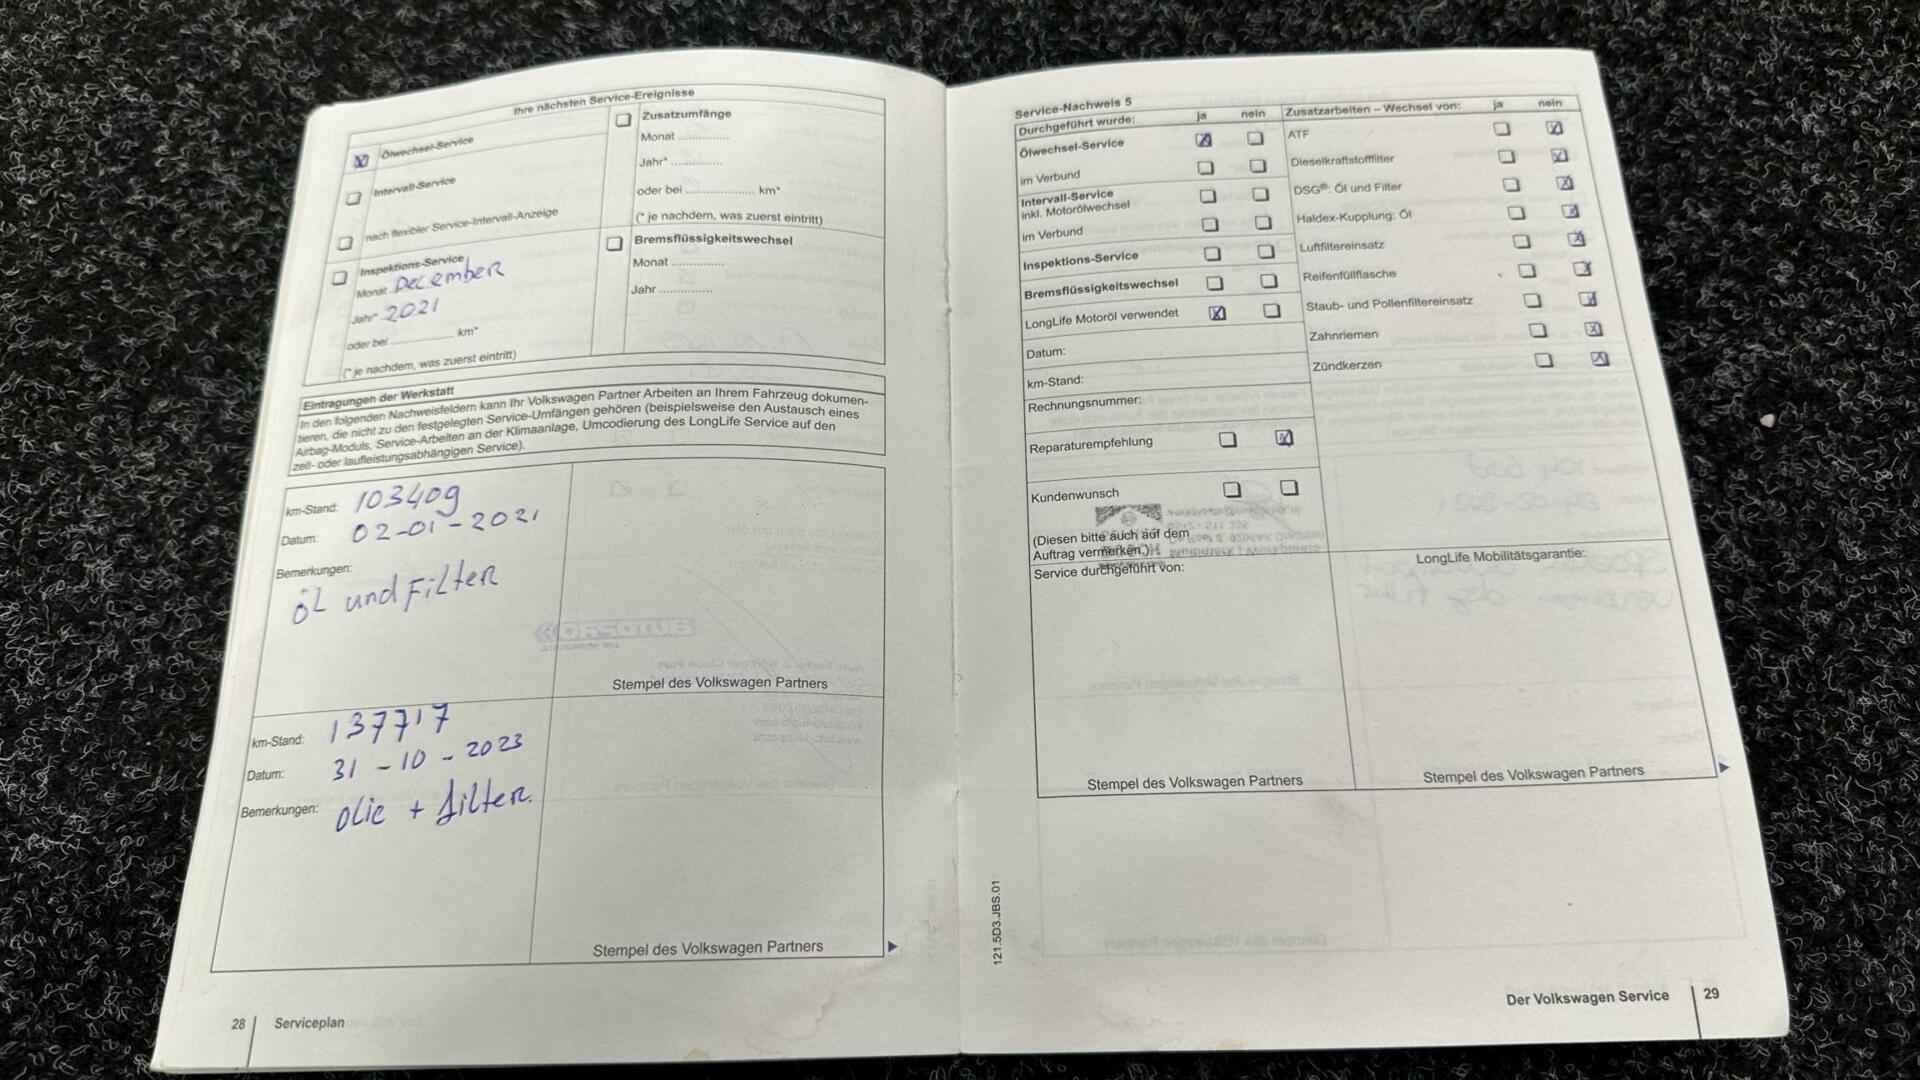 Ihre nächsten Service-Ereignisse
Ölwechsel-Service
Intervall-Service
nach flexibler Service-Intervall-Anzeige
Inspektions-Service
Monat December
Jahr* 2021
oder bei .................. km*
(* je nachdem, was zuerst eintritt)
Zusatzumfänge
Monat ..............
Jahr* ..............
oder bei ................... km*
(* je nachdem, was zuerst eintritt)
Bremsflüssigkeitswechsel
Monat ..............
Jahr ..............
Eintragungen der Werkstatt
In den folgenden Nachweisfeldern kann Ihr Volkswagen Partner Arbeiten an Ihrem Fahrzeug dokumen-
tieren, die nicht zu den festgelegten Service-Umfängen gehören (beispielsweise den Austausch eines
Airbag-Moduls, Service-Arbeiten an der Klimaanlage, Umcodierung des LongLife Service auf den
zeit- oder laufleistungsabhängigen Service).
km-Stand: 103409
Datum: 02-01-2021
Bemerkungen:
ÖL und Filter
Stempel des Volkswagen Partners
km-Stand: 137717
Datum: 31-10-2023
Bemerkungen: olie + filter.
Stempel des Volkswagen Partners
28 Serviceplan
Service-Nachweis 5
Durchgeführt wurde: ja nein
Ölwechsel-Service
im Verbund
Intervall-Service
inkl. Motorölwechsel
im Verbund
Inspektions-Service
Bremsflüssigkeitswechsel
LongLife Motoröl verwendet
Datum:
km-Stand:
Rechnungsnummer:
Reparaturempfehlung
Kundenwunsch
(Diesen bitte auch auf dem
Auftrag vermerken.)
Zusatzarbeiten – Wechsel von: ja nein
ATF
Dieselkraftstofffilter
DSG®: Öl und Filter
Haldex-Kupplung: Öl
Luftfiltereinsatz
Reifenfüllflasche
Staub- und Pollenfiltereinsatz
Zahnriemen
Zündkerzen
Service durchgeführt von:
Stempel des Volkswagen Partners
LongLife Mobilitätsgarantie:
Stempel des Volkswagen Partners
121.5D3.JBS.01
Der Volkswagen Service 29